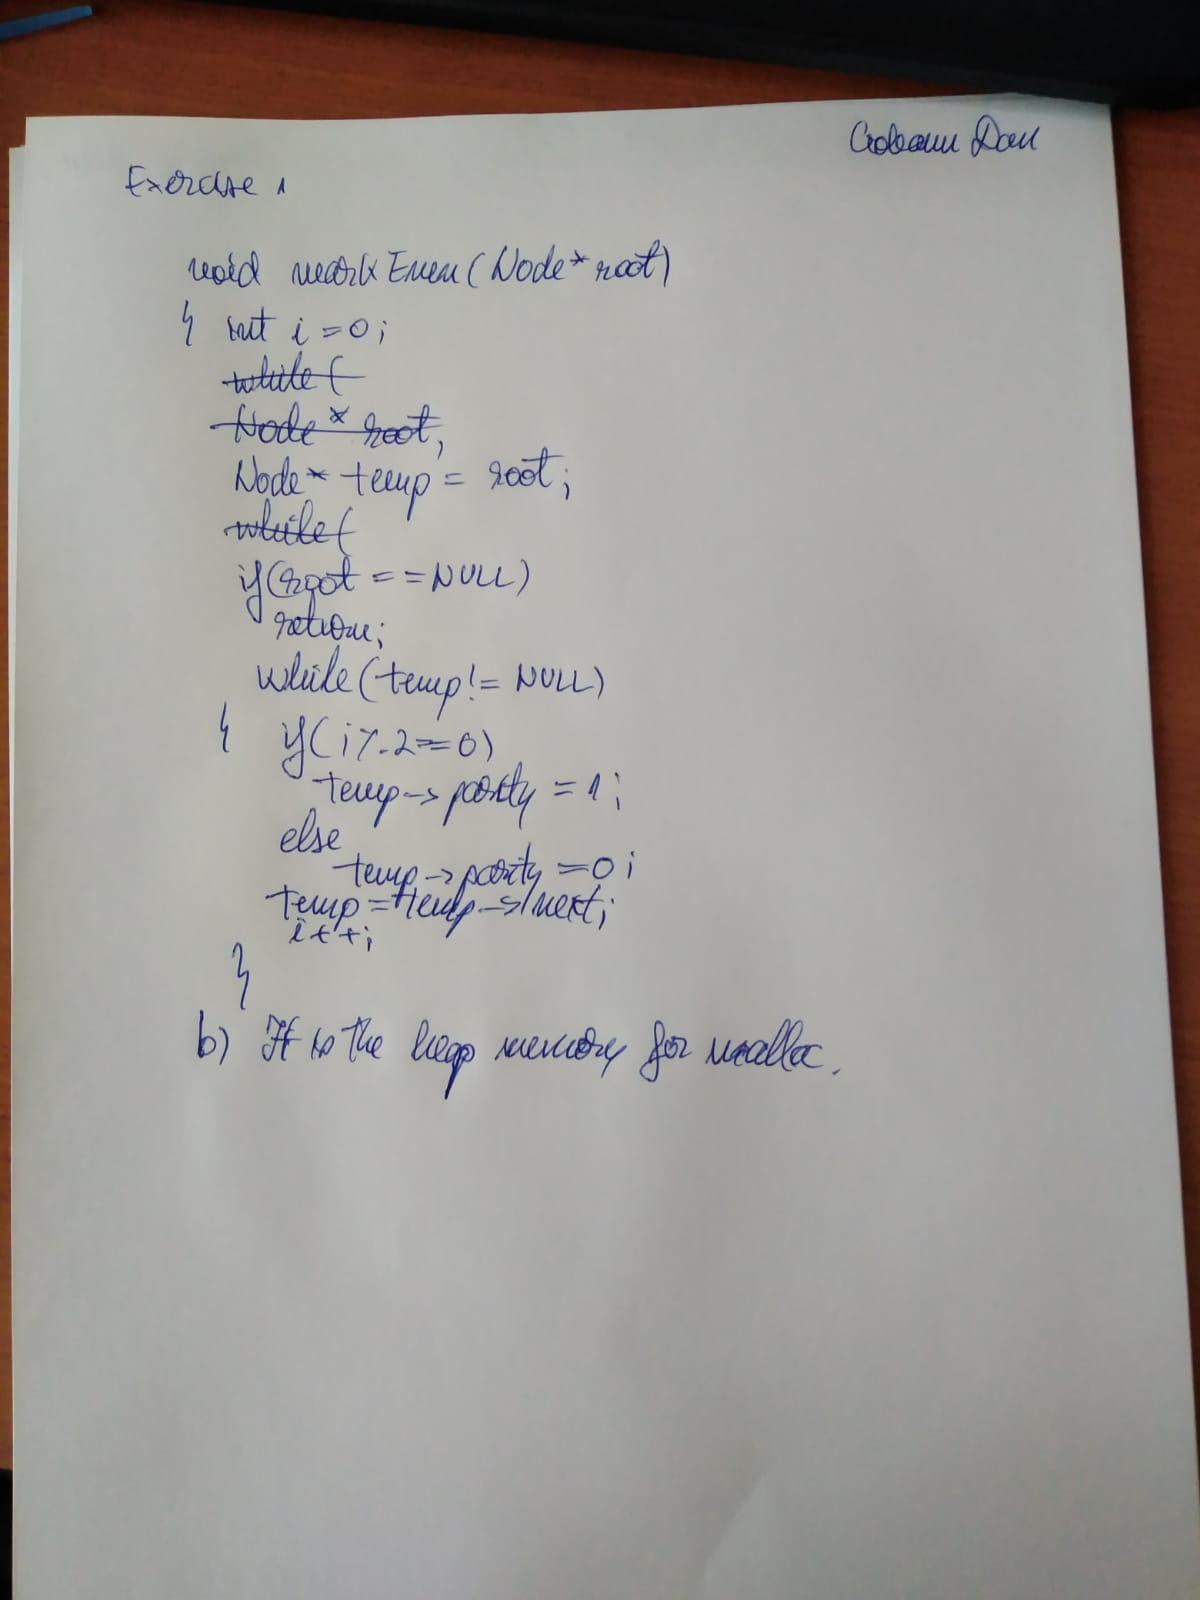 Dan
Exercise 1
void markEven(Node* root)
{ int i=0;
while(
Node* root,
Node* temp = root;
while(
if(root == NULL)
return;
while(temp != NULL)
{ if(i%2==0)
temp->parity = 1;
else
temp->parity = 0;
temp = temp->next;
i++;
}
b) It is the heap memory for malloc.